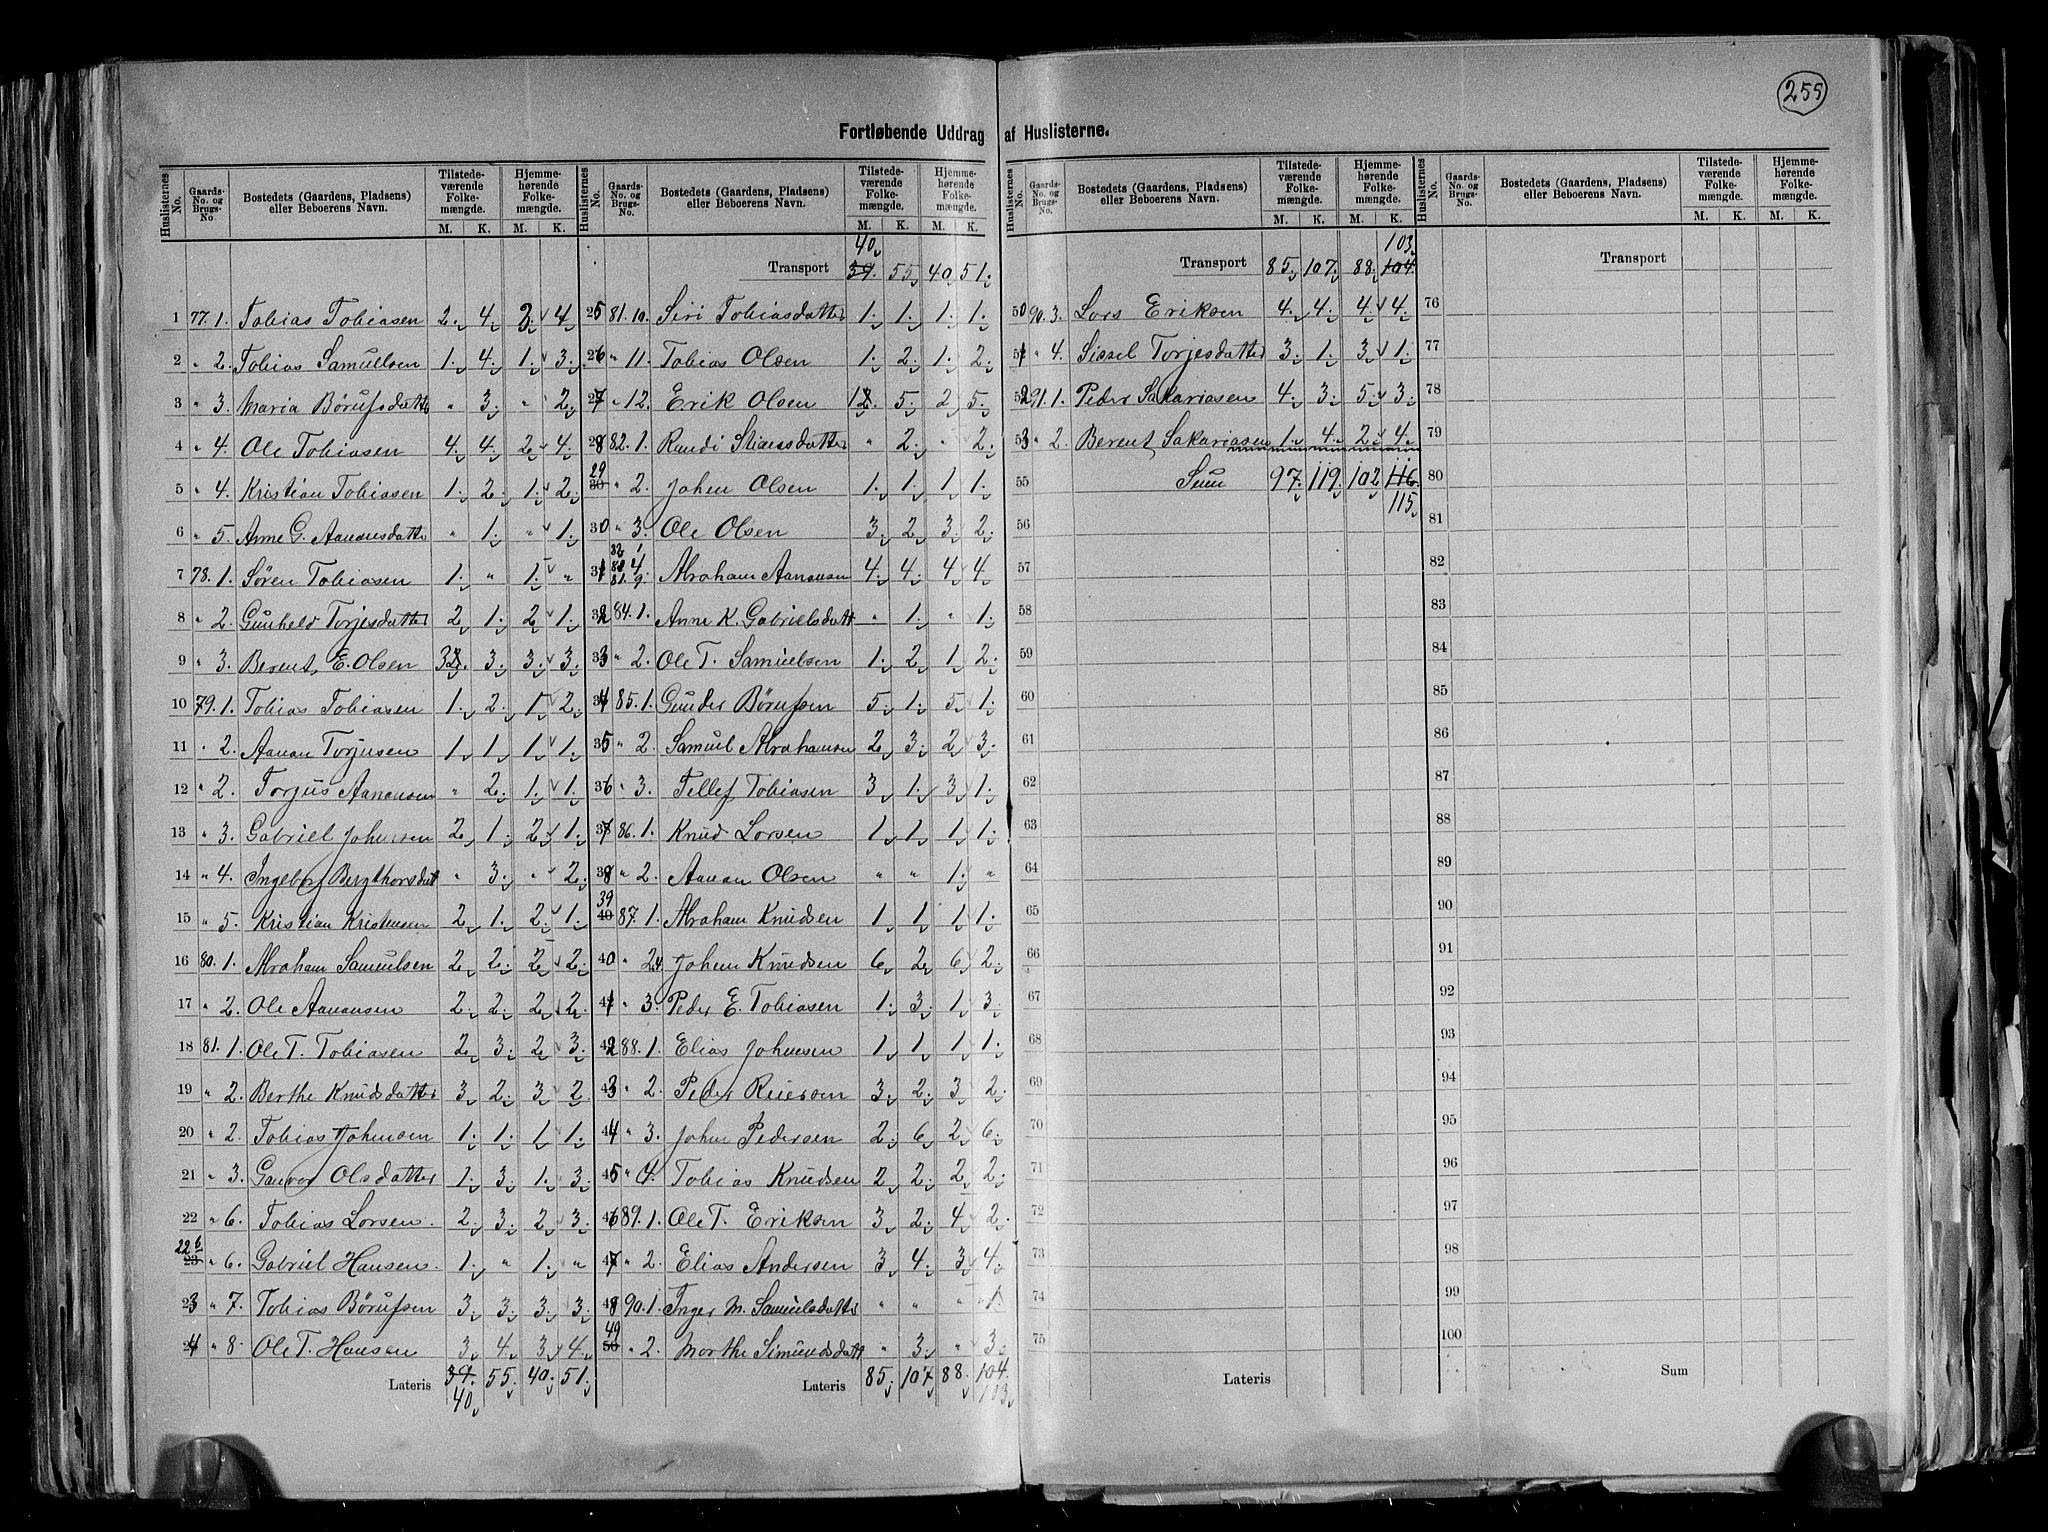 255
Fortløbende Uddrag af Huslisterne.
Huslisternes No. Gaards-No. og Brugs-No. Bostedets (Gaardens, Pladsens) eller Beboerens Navn. Tilstede-værende Folke-mængde. Hjemme-hørende Folke-mængde.
M. K. M. K.
1 77. 1. Tobias Tobiasen 2. 4. 2. 4.
2 " 2. Tobias Samuelsen 1. 4. 1. 3.
3 " 3. Maria Børufsdatter " 3. " 2.
4 " 4. Ole Tobiasen 4. 4. 2. 4.
5 " 4. Kristian Tobiasen 1. 2. 1. 2.
6 " 5. Anne G. Aanonsdatter " 1. " 1.
7 78. 1. Søren Tobiasen 1. " 1. "
8 " 2. Gunheld Torjesdatter 2 1. 2. 1.
9 " 3. Berent E. Olsen 3. 3. 3. 3.
10 79. 1. Tobias Tobiasen 1. 2. 1. 2.
11 " 2. Aanon Torjusen 1 1. 1. 1.
12 " 2. Torjus Aanonsen " 2. 1. 1.
13 " 3. Gabriel Johnsen 2 1. 2. 1.
14 " 4. Ingeborg Bergthorsdat " 3. " 2.
15 " 5. Kristian Kristensen 2 1. 2. 1.
16 80. 1. Abraham Samuelsen 2 2. 2. 2.
17 " 2. Ole Aanonsen 2. 2. 2 2.
18 81. 1. Ole T. Tobiasen 2. 3. 2 3.
19 " 2. Berthe Knudsdatter 3 2. 3. 2
20 " 2. Tobias Johnsen 1. 1. 1 1.
21 " 3. Gunvor Olsdatter 1. 3. 1. 3.
22 " 6. Tobias Larsen. 2. 3. 2 3.
22 b 23 " 6. Gabriel Hansen. 1. " 1. "
23 " 7. Tobias Børufsen 3. 3. 3. 3.
24 " 8. Ole T. Hansen 3. 4. 3. 4.
Lateris 39. 55. 40. 51.
40
Huslisternes No. Gaards-No. og Brugs-No. Bostedets (Gaardens, Pladsens) eller Beboerens Navn. Tilstede-værende Folke-mængde. Hjemme-hørende Folke-mængde.
M. K. M. K.
40
Transport 39. 55. 40 51.
25 81. 10. Siri Tobiasdatter 1. 1. 1. 1.
26 " 11. Tobias Olsen 1. 2. 1. 2.
27 " 12. Erik Olsen 12. 5. 2 5.
28 82. 1. Randi Stiansdatter " 2. " 2.
29 30 " 2. John Olsen 1. 1. 1. 1.
30 " 3. Ole Olsen 3. 2. 3. 2.
31 4. 81. 9 Abraham Aanonsen 4. 4. 4. 4.
32 84. 1. Anne K. Gabrielsdatt " 1. " 1.
33 " 2. Ole T. Samuelsen 1. 2. 1 2.
34 85. 1. Gunder Børufsen 5. 1. 5. 1.
35 " 2. Samuel Abrahamsen 2 3. 2 3.
36 " 3. Tellef Tobiasen 3 1. 3. 1.
37 86. 1. Knud Larsen 1 1. 1. 1.
38 " 2. Aanon Olsen " " 1. "
39 40 87. 1. Abraham Knudsen 1 1. 1. 1.
40 " 2. John Knudsen 6 2. 6 2.
41 " 3. Peder E. Tobiasen 1. 3. 1. 3.
42 88. 1. Elias Johnsen 1. 1. 1. 1.
43 " 2. Peder Reiersen 3. 2. 3 2.
44 " 3. John Pedersen 2. 6 2 6.
45 " 4. Tobias Knudsen 2 2. 2 2.
46 89. 1. Ole T. Eriksen 3. 2. 4. 2.
47 " 2. Elias Andersen 3. 4. 3 4.
48 90. 1. Inger M. Samuelsdatter " " " 1.
49 50 " 2. Marthe Simundsdatt " 3. " 3.
Lateris 85. 107 88. 104.
103
Huslisternes No. Gaards-No. og Brugs-No. Bostedets (Gaardens, Pladsens) eller Beboerens Navn. Tilstede-værende Folke-mængde. Hjemme-hørende Folke-mængde.
M. K. M. K.
103
Transport 85. 107. 88. 104.
50 90. 3. Lars Eriksen 4. 4. 4. 4.
51 " 4. Sissel Torjesdatter 3. 1. 3 1.
52 91. 1. Peder Sakariasen 4. 3. 5. 3.
53 " 2. Berent Sakariasen 1. 4. 2. 4.
55 Sum 97. 119. 102 116.
115
56
57
58
59
60
61
62
63
64
65
66
67
68
69
70
71
72
73
74
75
Lateris
Huslisternes No. Gaards-No. og Brugs-No. Bostedets (Gaardens, Pladsens) eller Beboerens Navn. Tilstede-værende Folke-mængde. Hjemme-hørende Folke-mængde.
M. K. M. K.
Transport
76
77
78
79
80
81
82
83
84
85
86
87
88
89
90
91
92
93
94
95
96
97
98
99
100
Sum